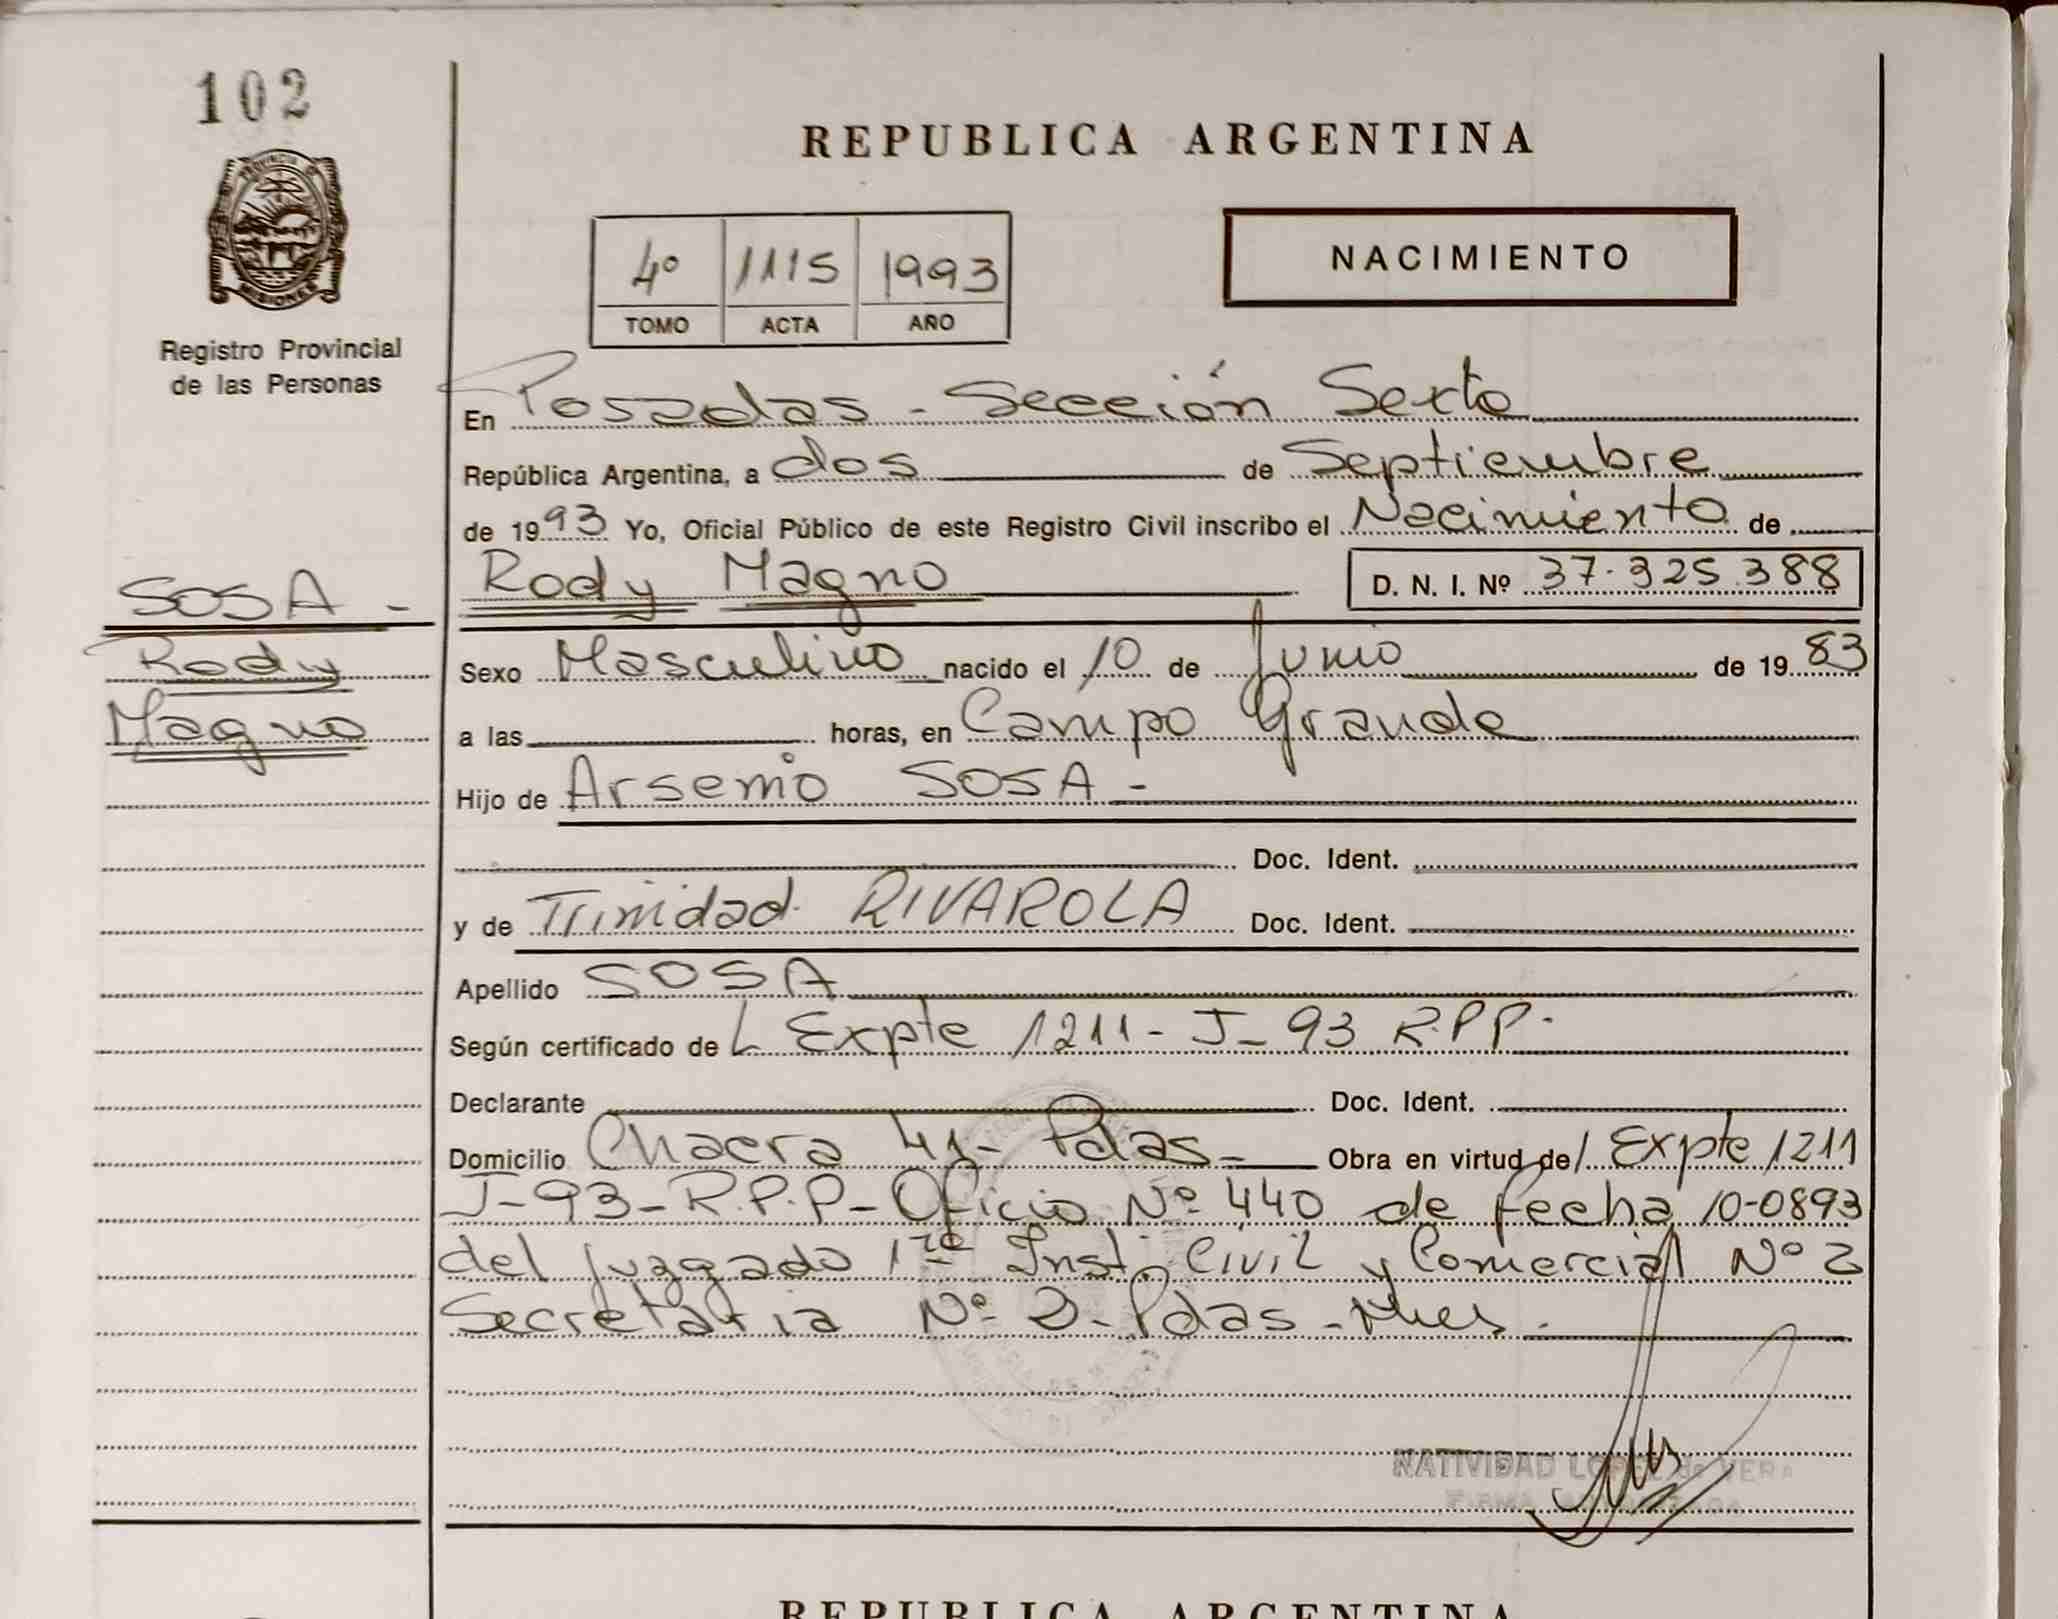 102
PROVINCIA DE
MISIONES
Registro Provincial
de las Personas
REPUBLICA ARGENTINA
4º 1115 1993
TOMO ACTA AÑO
NACIMIENTO
En Posadas - Sección Sexta
República Argentina, a dos de Septiembre
de 1993 Yo, Oficial Público de este Registro Civil inscribo el Nacimiento de
SOSA -
Rody
Magno
Rody Magno D. N. I. Nº 37.325.388
Sexo Masculino nacido el 10 de Junio de 1983
a las horas, en Campo Grande
Hijo de Arsenio SOSA -
Doc. Ident.
y de Trinidad RIVAROLA Doc. Ident.
Apellido SOSA
Según certificado de Expte 1211 - J - 93 R.P.P.
Declarante Doc. Ident.
Domicilio Chacra 41 - Pdas - Obra en virtud de Expte 1211
J-93-R.P.P- Oficio Nº 440 de fecha 10-0893
del juzgado 1ra Inst. Civil y Comercial Nº 2
Secretaria Nº 2 - Pdas - Mnes -
NATIVIDAD LOPEZ de VERA
REPUBLICA ARGENTINA